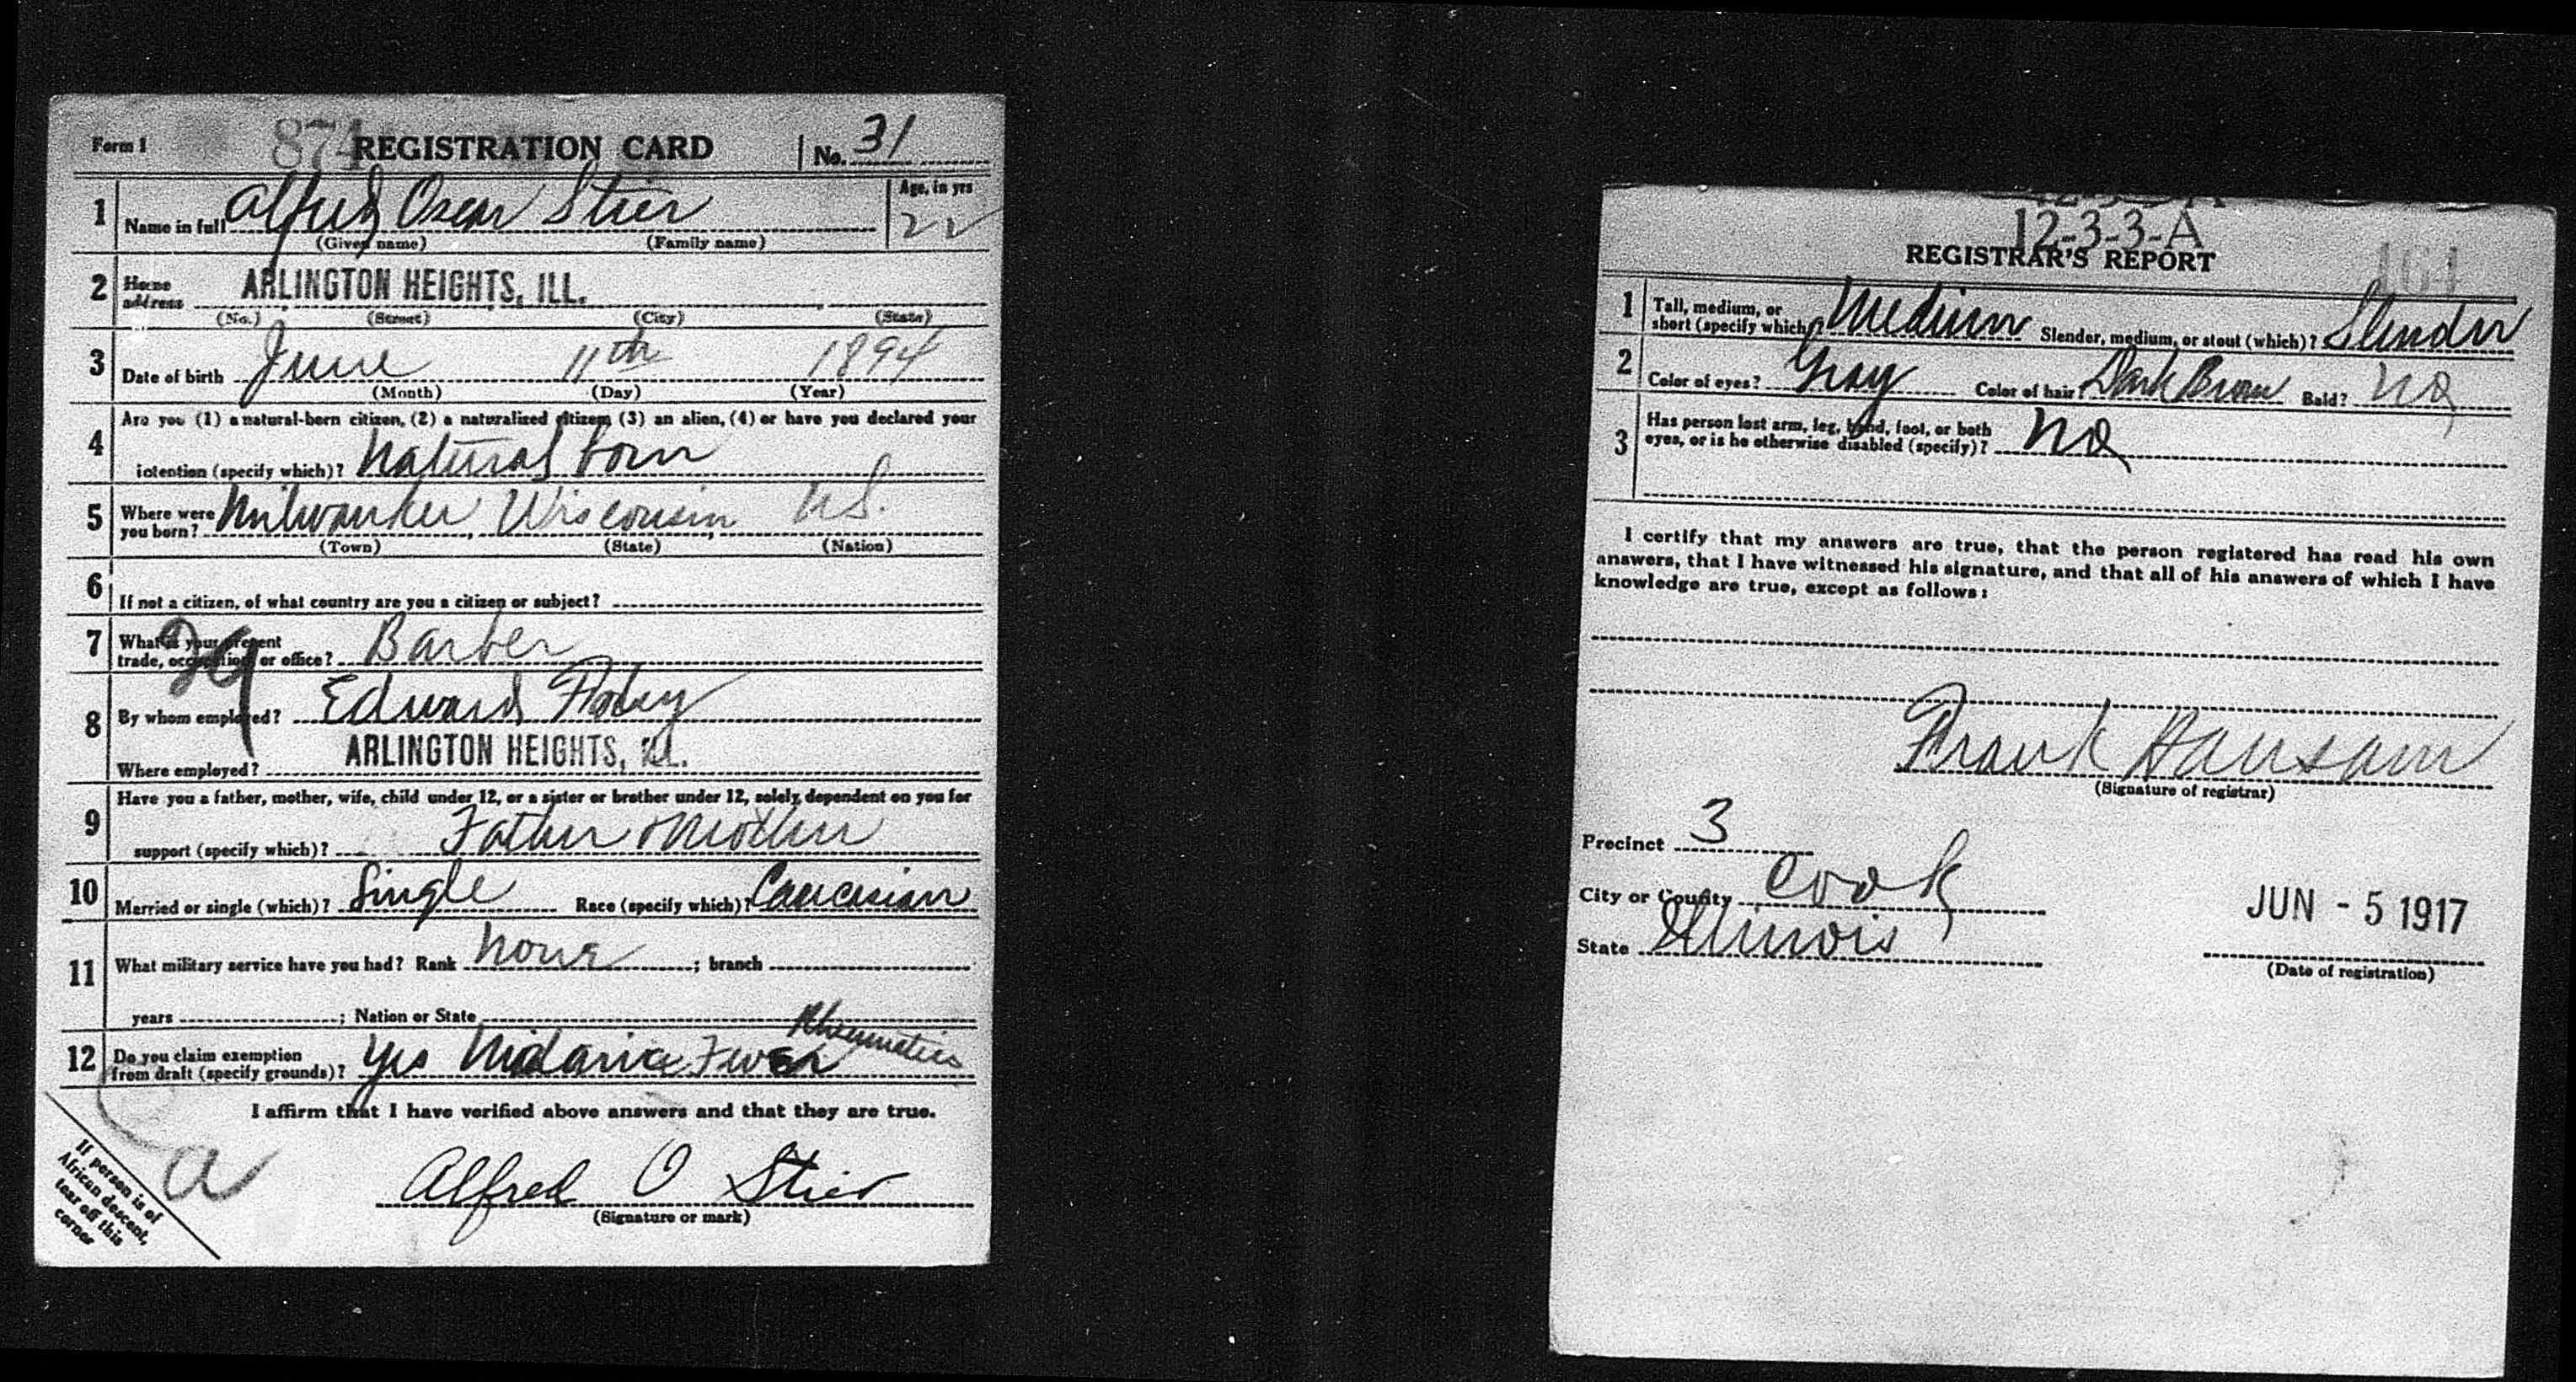 Form 1 874 REGISTRATION CARD No. 31
1 Name in full Alfred Oscar Stier Age, in yrs 22
(Given name) (Family name)
2 Home address ARLINGTON HEIGHTS, ILL.
(No.) (Street) (City) (State)
3 Date of birth June 11th 1894
(Month) (Day) (Year)
4 Are you (1) a natural-born citizen, (2) a naturalized citizen (3) an alien, (4) or have you declared your
intention (specify which)? Natural born
5 Where were you born? Milwaukee Wisconsin U.S.
(Town) (State) (Nation)
6 If not a citizen, of what country are you a citizen or subject?
7 What is your present trade, occupation, or office? Barber
29
8 By whom employed? Edward
Where employed? ARLINGTON HEIGHTS, ILL.
9 Have you a father, mother, wife, child under 12, or a sister or brother under 12, solely dependent on you for
support (specify which)? Father & Mother
10 Married or single (which)? Single Race (specify which)? Caucasian
11 What military service have you had? Rank None ; branch
years ; Nation or State
12 Do you claim exemption from draft (specify grounds)? Yes Fever Rheumatics
I affirm that I have verified above answers and that they are true.
a
Alfred O Stier
(Signature or mark)
If person is of
African descent,
tear off this
corner
12-3-3-A
REGISTRAR'S REPORT 161
1 Tall, medium, or short (specify which)? Medium Slender, medium, or stout (which)? Slender
2 Color of eyes? Gray Color of hair? Dark Brown Bald? No
3 Has person lost arm, leg, hand, foot, or both
eyes, or is he otherwise disabled (specify)? No
I certify that my answers are true, that the person registered has read his own
answers, that I have witnessed his signature, and that all of his answers of which I have
knowledge are true, except as follows:
Frank Hausam
(Signature of registrar)
Precinct 3
City or County Cook
State Illinois
JUN - 5 1917
(Date of registration)